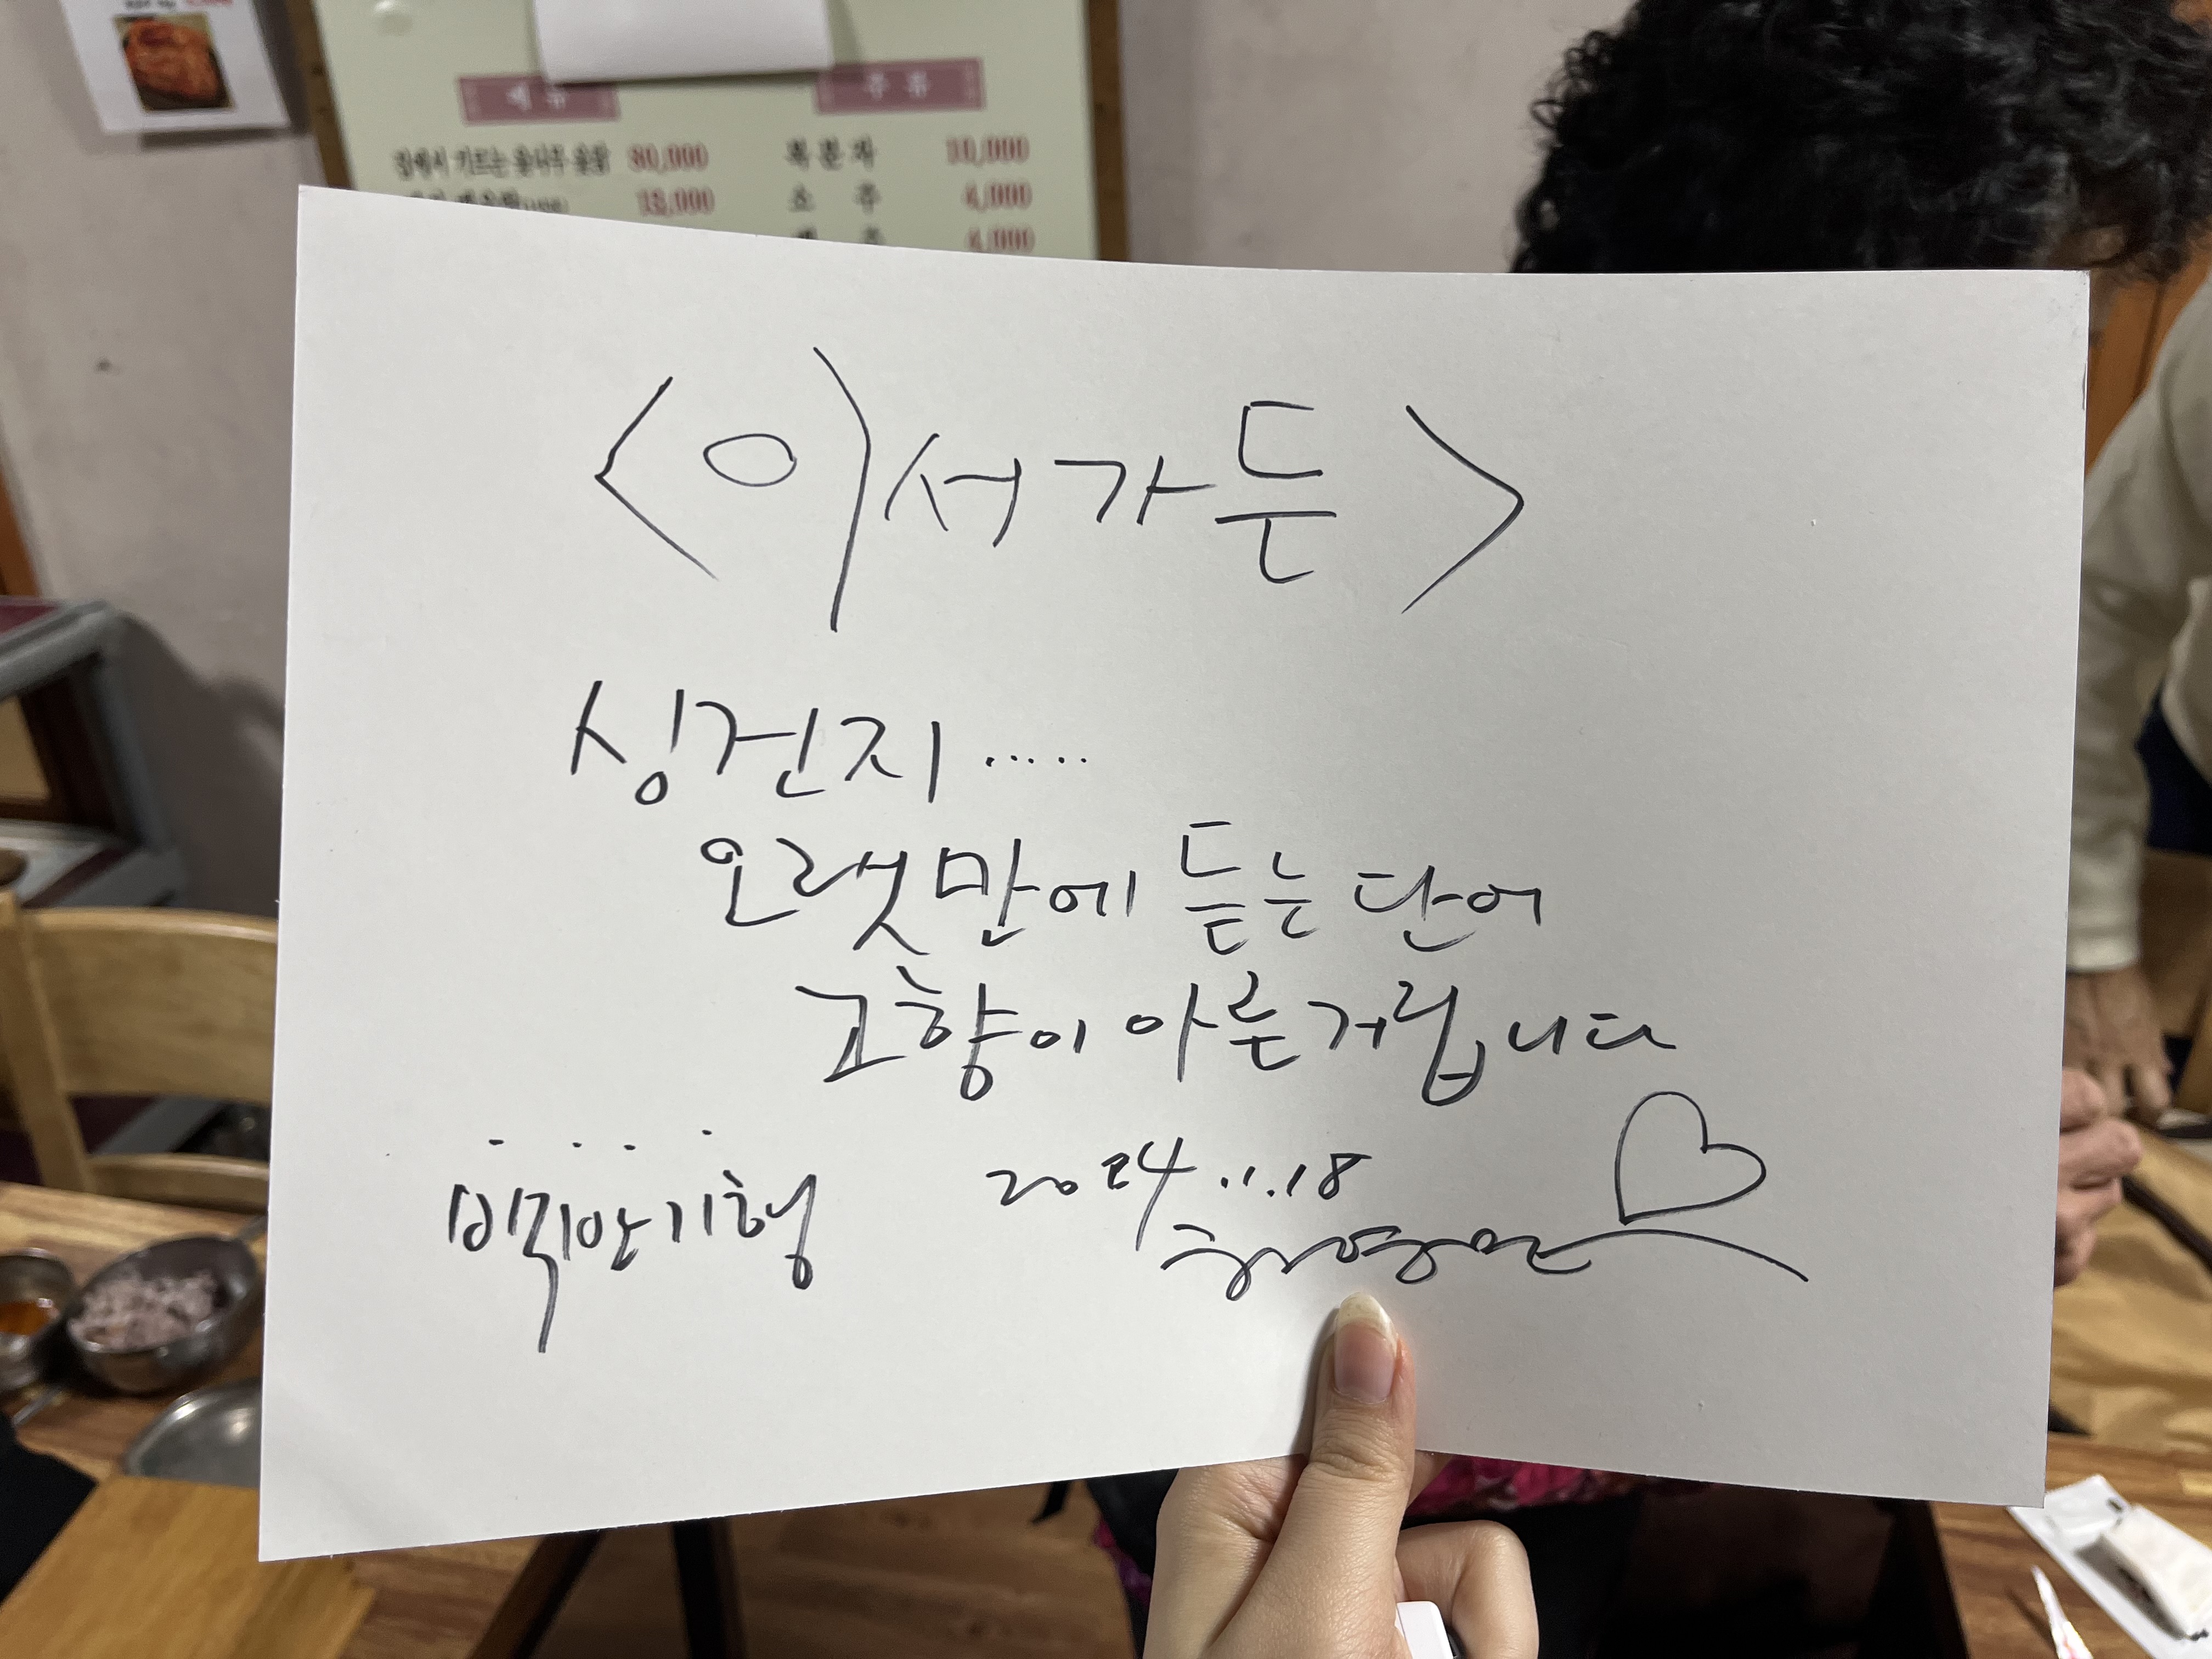 주류
80,000 복분자 10,000
18,000 소주 4,000
맥주 4,000
<이서가든>
싱건지 .....
오랫만에 듣는 단어
고향이 아른거립니다
백반기행 2024.11.18
허영만